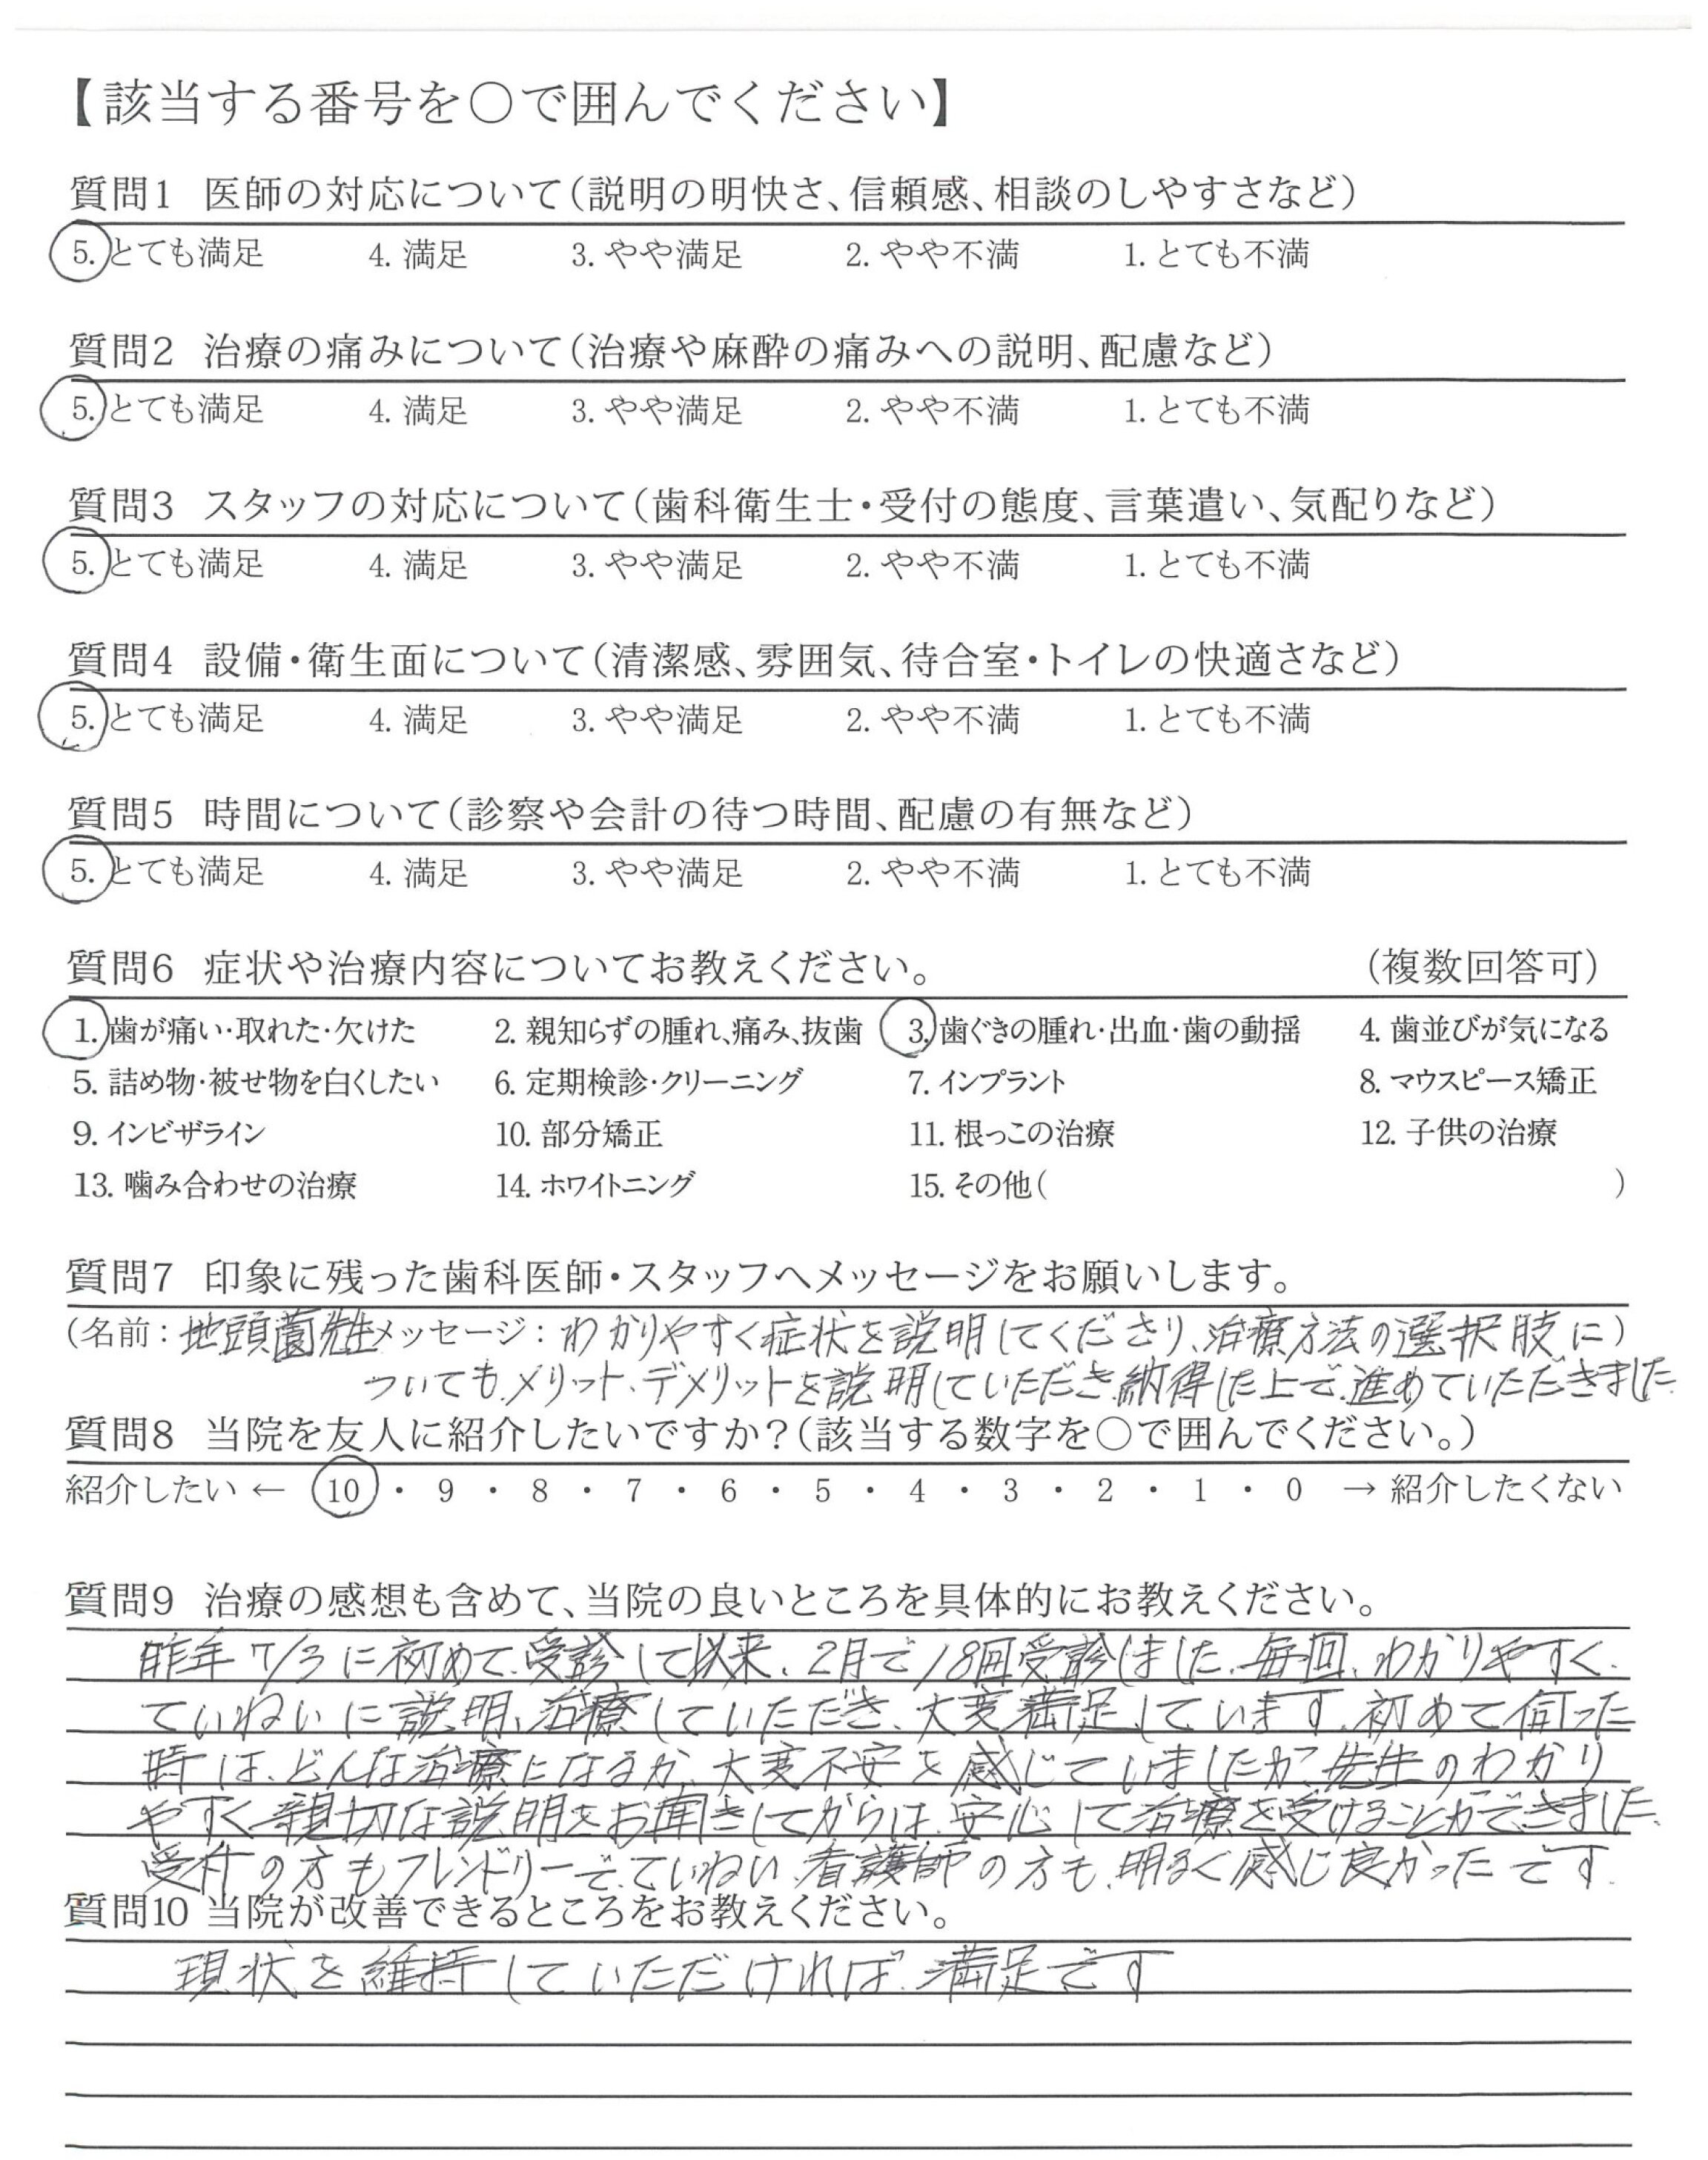 【該当する番号を○で囲んでください】
質問1 医師の対応について(説明の明快さ、信頼感、相談のしやすさなど)
5. とても満足 4. 満足 3. やや満足 2. やや不満 1. とても不満
質問2 治療の痛みについて(治療や麻酔の痛みへの説明、配慮など)
5. とても満足 4. 満足 3. やや満足 2. やや不満 1. とても不満
質問3 スタッフの対応について(歯科衛生士・受付の態度、言葉遣い、気配りなど)
5. とても満足 4. 満足 3. やや満足 2. やや不満 1. とても不満
質問4 設備・衛生面について(清潔感、雰囲気、待合室・トイレの快適さなど)
5. とても満足 4. 満足 3. やや満足 2. やや不満 1. とても不満
質問5 時間について(診察や会計の待つ時間、配慮の有無など)
5. とても満足 4. 満足 3. やや満足 2. やや不満 1. とても不満
質問6 症状や治療内容についてお教えください。 (複数回答可)
1. 歯が痛い・取れた・欠けた 2. 親知らずの腫れ、痛み、抜歯 3. 歯ぐきの腫れ・出血・歯の動揺 4. 歯並びが気になる
5. 詰め物・被せ物を白くしたい 6. 定期検診・クリーニング 7. インプラント 8. マウスピース矯正
9. インビザライン 10. 部分矯正 11. 根っこの治療 12. 子供の治療
13. 噛み合わせの治療 14. ホワイトニング 15. その他( )
質問7 印象に残った歯科医師・スタッフへメッセージをお願いします。
(名前:地頭薗先生 メッセージ:わかりやすく症状を説明してくださり、治療方法の選択肢に)
ついても、メリット、デメリットを説明していただき、納得した上で、進めていただきました。
質問8 当院を友人に紹介したいですか?(該当する数字を○で囲んでください。)
紹介したい ← 10 ・ 9 ・ 8 ・ 7 ・ 6 ・ 5 ・ 4 ・ 3 ・ 2 ・ 1 ・ 0 → 紹介したくない
質問9 治療の感想も含めて、当院の良いところを具体的にお教えください。
昨年7/3に初めて、受診して以来、2月で18回受診しました。毎回、わかりやすく、
ていねいに説明、治療していただき、大変満足しています。初めて伺った
時は、どんな治療になるか、大変不安を感じていましたが、先生のわかり
やすく親切な説明をお聞きしてからは、安心して治療を受けることができました。
受付の方もフレンドリーで、ていねい、看護師の方も、明るく感じ良かったです。
質問10 当院が改善できるところをお教えください。
現状を維持していただければ、満足です